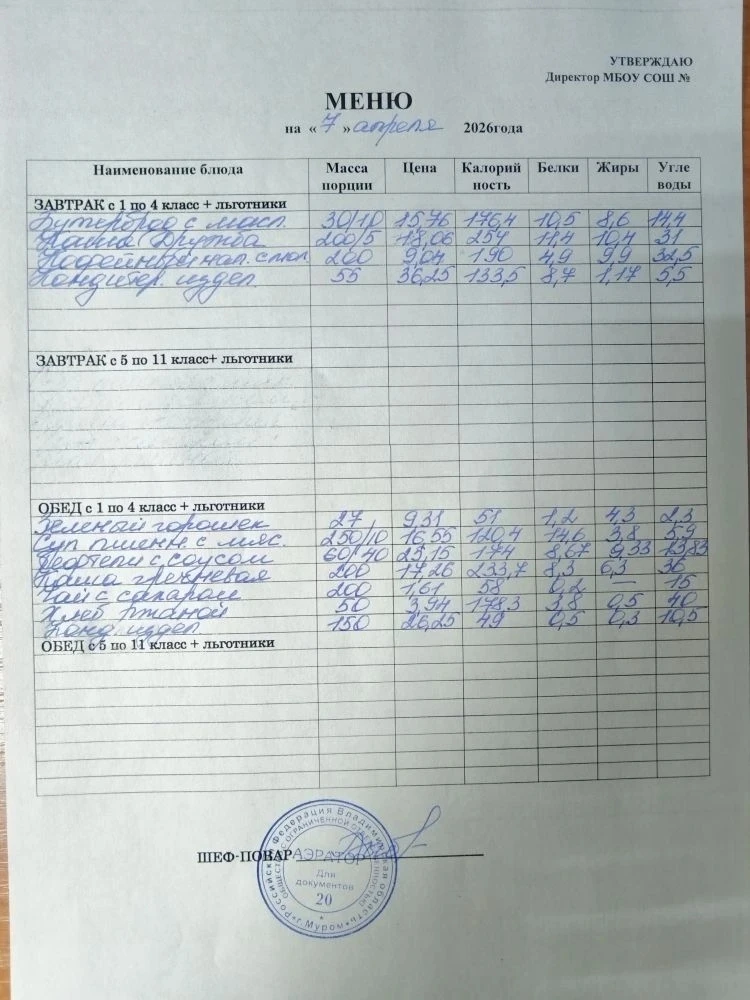 УТВЕРЖДАЮ
Директор МБОУ СОШ №
МЕНЮ
на «7» апреля 2026года
Наименование блюда Масса порции Цена Калорий ность Белки Жиры Угле воды
ЗАВТРАК с 1 по 4 класс + льготники
Бутерброд с масл. 30/10 15,76 176,4 10,5 8,6 14,4
Каша Дружба 200/5 18,06 254 11,4 10,4 31
Кофейный нап. с мол. 200 9,04 190 4,9 9,9 32,5
Кондитер. издел. 55 36,25 133,5 8,7 1,17 5,5
ЗАВТРАК с 5 по 11 класс+ льготники
ОБЕД с 1 по 4 класс + льготники
Зеленый горошек 27 9,31 51 1,2 4,3 2,3
Суп пшенн. с мяс. 250/10 16,55 120,4 14,6 3,8 5,9
Тефтели с соусом 60/40 25,15 174 8,67 9,33 13,83
Каша гречневая 200 17,26 233,7 8,3 6,3 36
Чай с сахаром 200 1,61 58 0,2 — 15
Хлеб ржаной 50 3,94 178,3 3,8 0,5 40
Конд. издел. 150 26,25 49 0,5 0,3 10,5
ОБЕД с 5 по 11 класс + льготники
ШЕФ-ПОВАР
Российская Федерация Владимирская область
ОБЩЕСТВО С ОГРАНИЧЕННОЙ ОТВЕТСТВЕННОСТЬЮ
АЭРАТОР
Для
документов
20
г. Муром